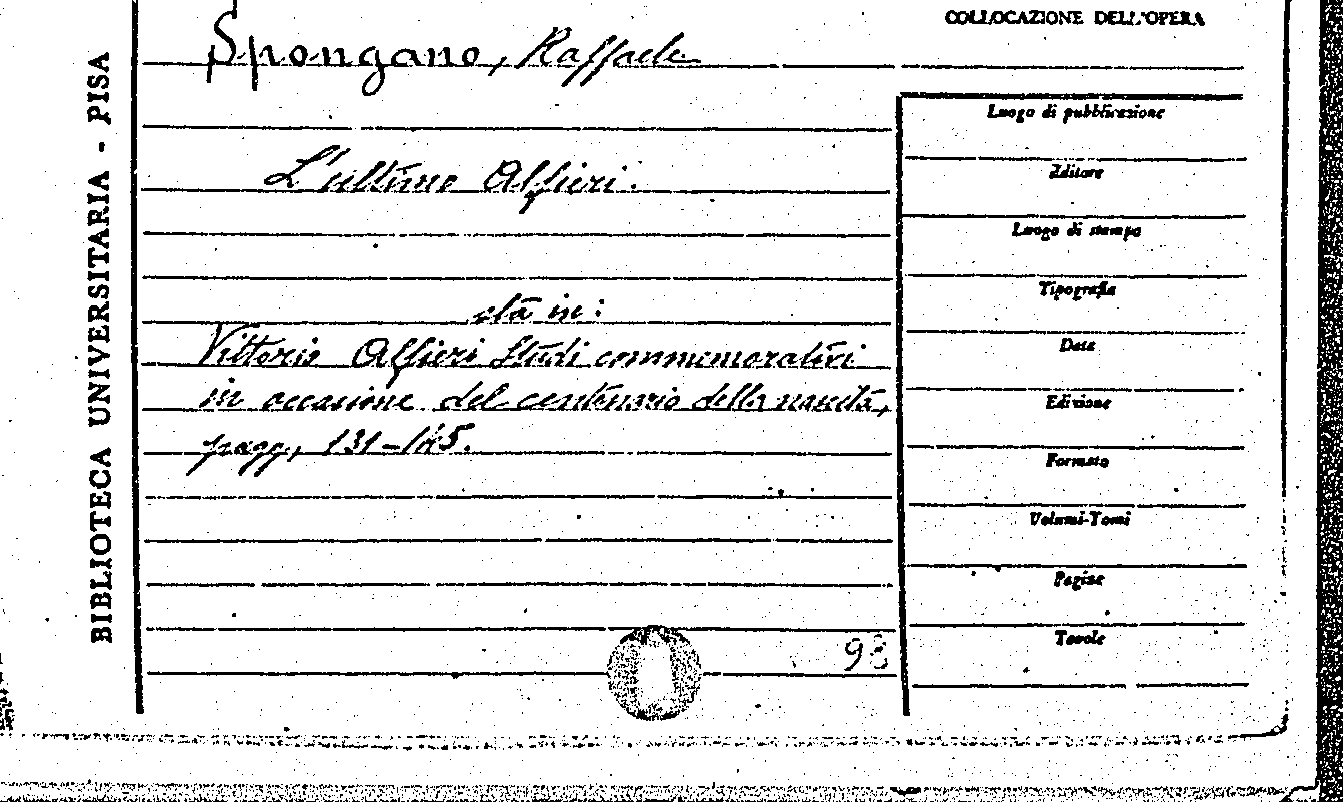 COLLOCAZIONE DELL'OPERA
Spongano, Raffaele
L'ultimo Alfieri.
stà in:
Vittorio Alfieri Studi commemorativi
in occasione del centenario della nascita,
pagg, 131-145.
BIBLIOTECA UNIVERSITARIA - PISA
Luogo di pubblicazione
Editore
Luogo di stampa
Tipografia
Data
Edizione
Formato
Volumi-Tomi
Pagine
Tavole